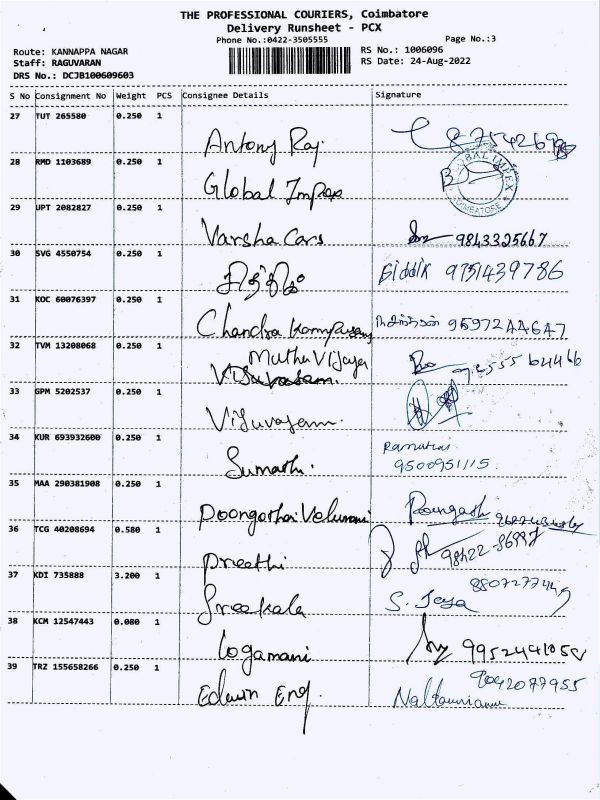 THE PROFESSIONAL COURIERS, Coimbatore
Delivery Runsheet - PCX
Phone No.:0422-3505555
Page No.:3
Route: KANNAPPA NAGAR
RS No.: 1006096
Staff: RAGUVARAN
RS Date: 24-Aug-2022
DRS No.: DCJB100609603
S No Consignment No Weight PCS Consignee Details Signature
27 TUT 265580 0.250 1
Antony Raj
28 RMD 1103689 0.250 1
Global Impex
GLOBAL IMPEX
COIMBATORE
29 UPT 2082827 0.250 1
Varsha Cars 9843325667
30 SVG 4550754 0.250 1
சித்திக் Siddik 9751439786
31 KOC 60076397 0.250 1
Chandra
32 TVM 13208068 0.250 1
Muthu Vijaya
33 GPM 5202537 0.250 1
34 KUR 693932600 0.250 1
Sumathi.
9500951115
35 MAA 290381908 0.250 1
Poongothai
36 TCG 40208694 0.580 1
Preethi
37 KDI 735888 3.200 1
Sreekala S. Jeya
38 KCM 12547443 0.080 1
Logamani
39 TRZ 155658266 0.250 1
9042077955
Edwin Eng.